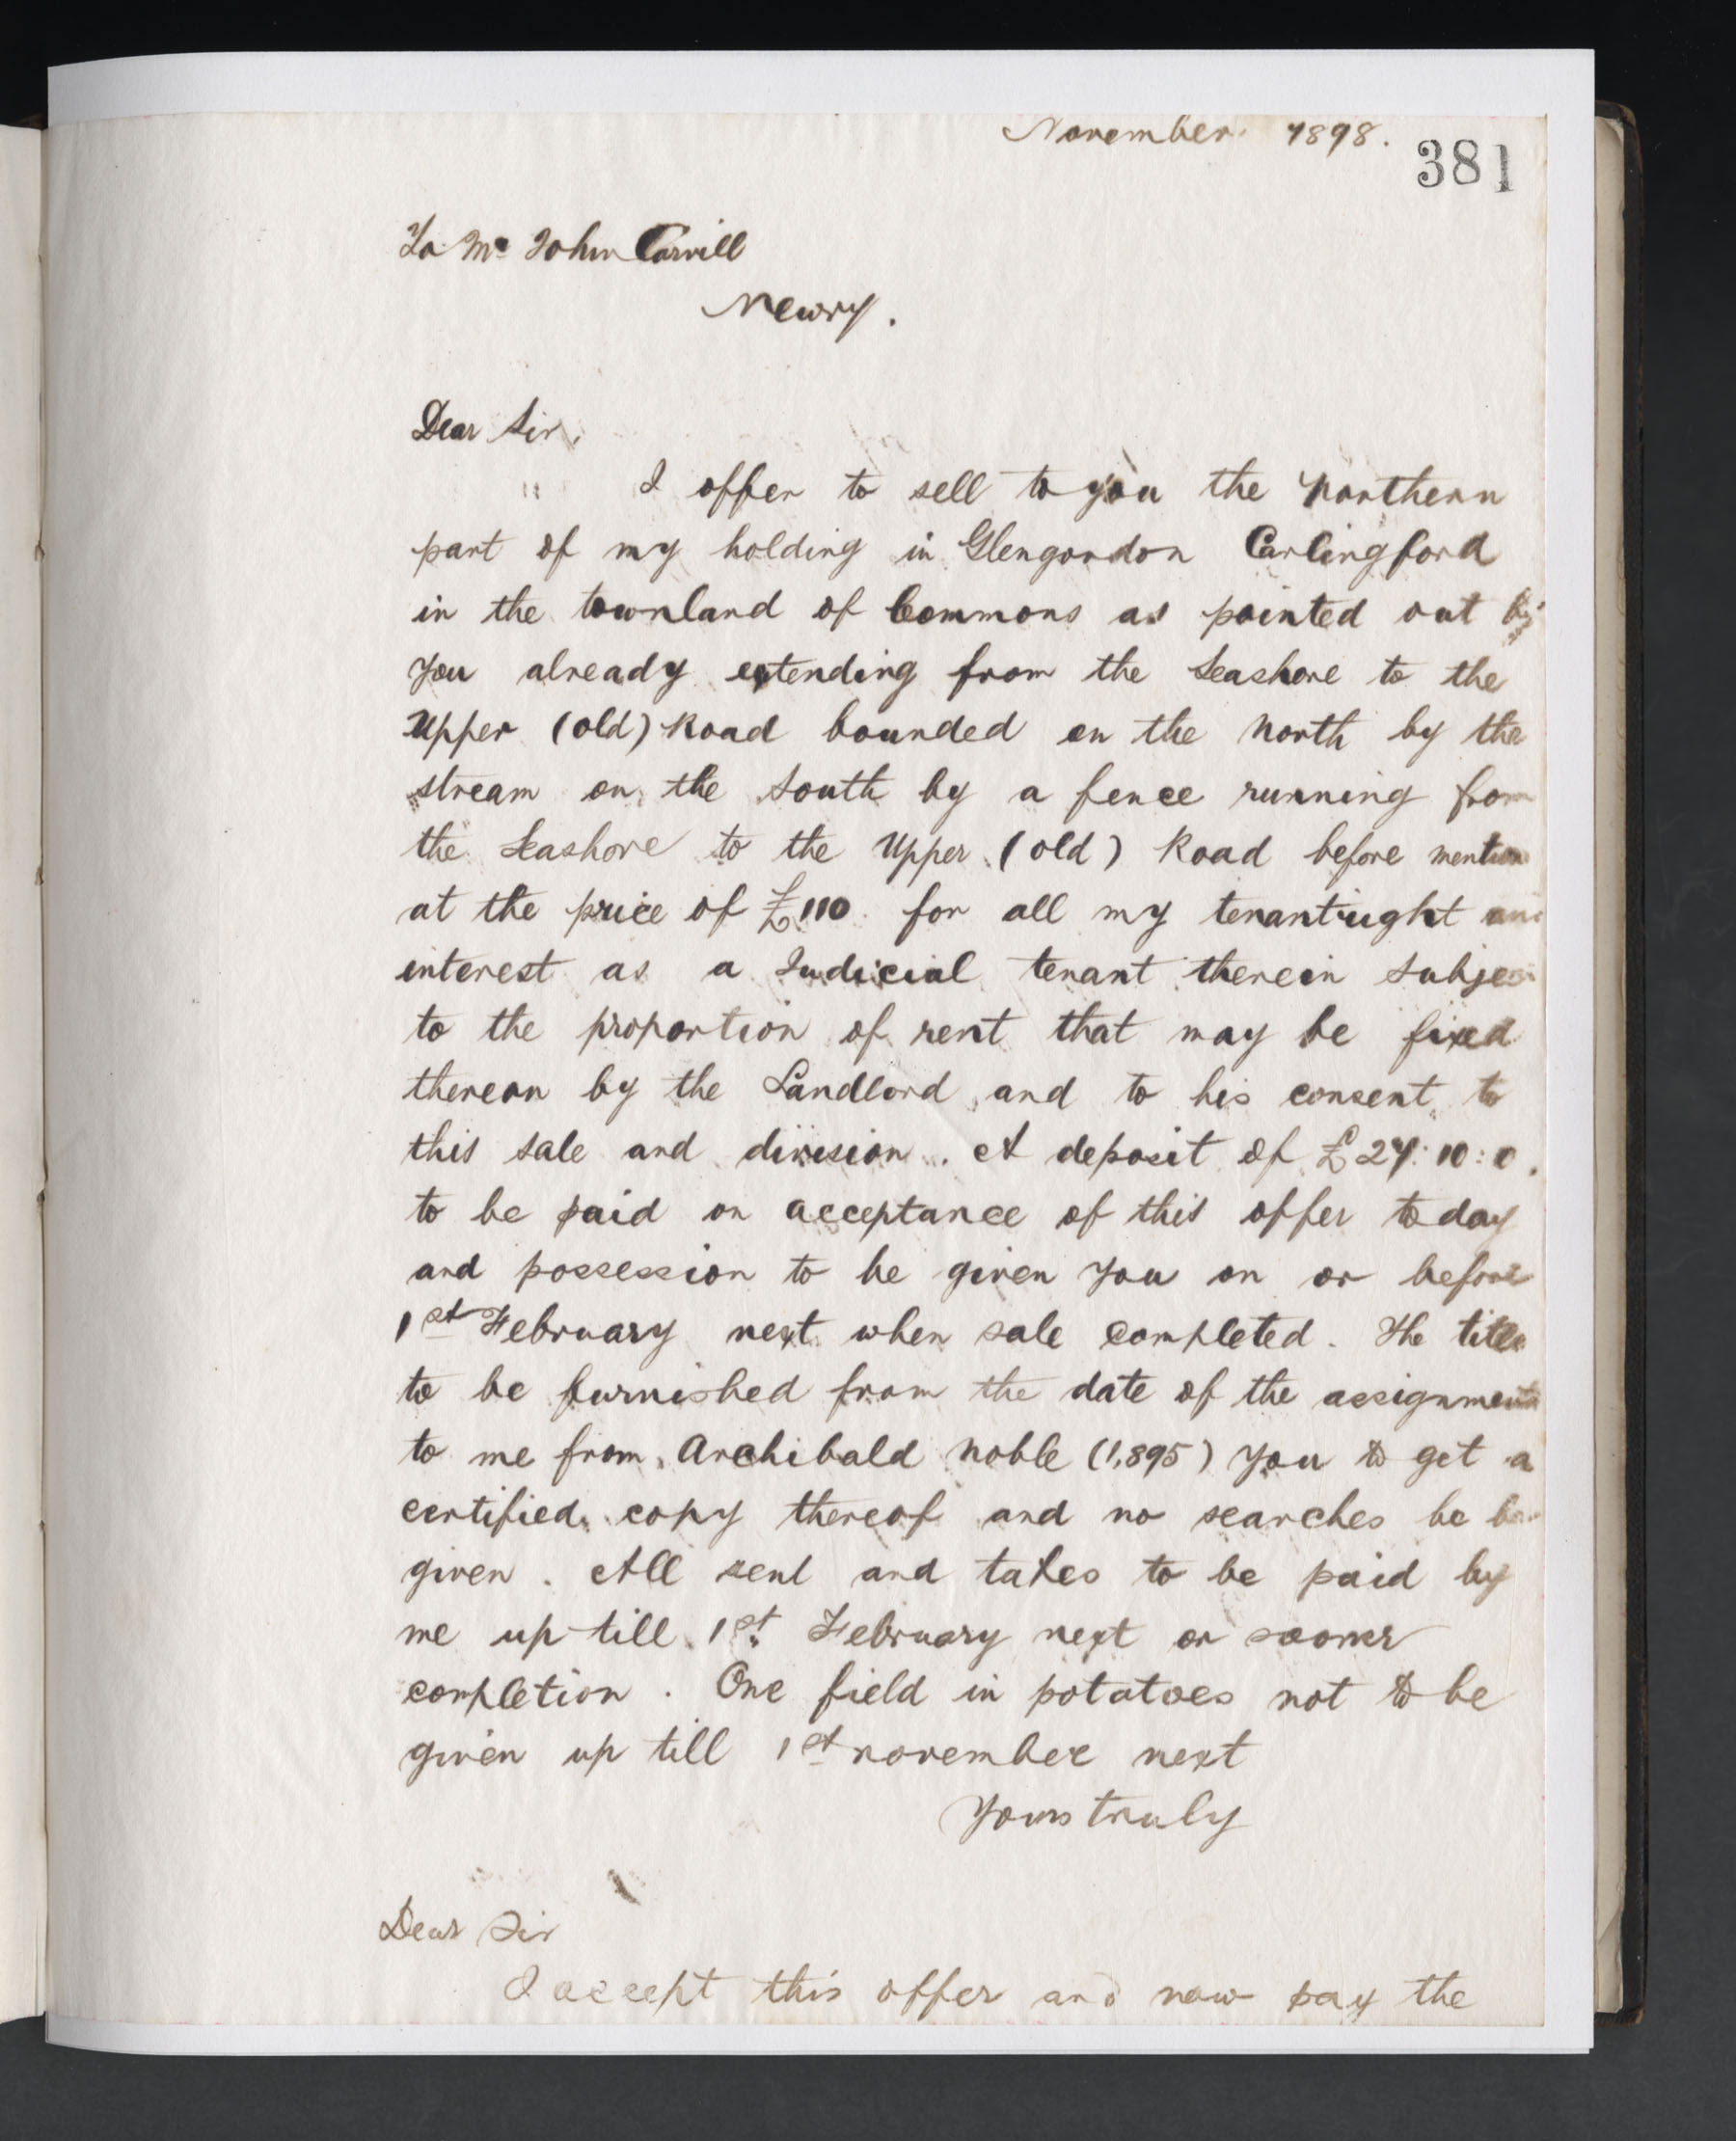 November 1898.
381
To Mr John Carvill
Newry.
Dear Sir,
I offer to sell to you the Northern
part of my holding in Glengordon Carlingford
in the townland of Commons as pointed out by
you already extending from the Seashore to the
Upper (old) Road bounded on the North by the
stream on the South by a fence running from
the Seashore to the Upper (old) Road before mention
at the price of £110 for all my tenantright and
interest as a Judicial tenant therein subject
to the proportion of rent that may be fixed
thereon by the Landlord and to his consent to
this sale and division. A deposit of £27:10:0.
to be paid on acceptance of this offer today
and possession to be given you on or before
1st February next when sale completed. The title
to be furnished from the date of the assignment
to me from Archibald Noble (1,895) you to get a
certified copy thereof and no searches be
given. All rent and taxes to be paid by
me up till 1st February next or sooner
completion. One field in potatoes not to be
given up till 1st november next
Yours truly
Dear Sir
I accept this offer and now pay the